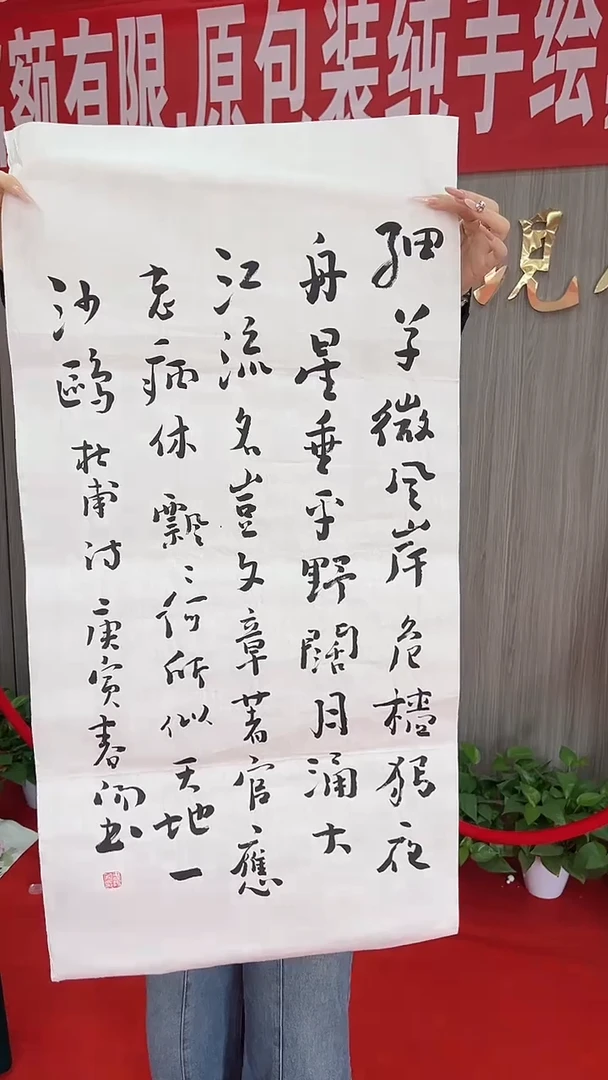 额有限,原包装纯手绘
細草微風岸危檣獨夜
舟星垂平野闊月涌大
江流名豈文章著官應
老病休飄〻何所似天地一
沙鷗 杜甫诗 庚寅春书